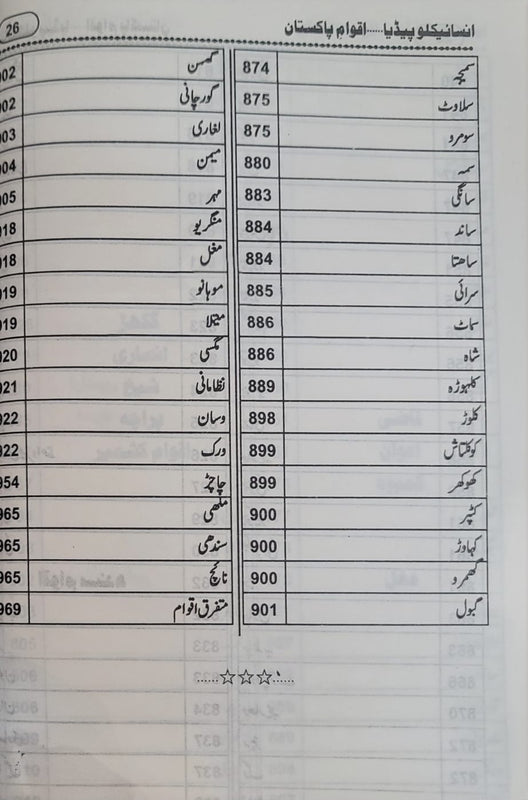 26
انسائیکلوپیڈیا.....اقوام پاکستان
سمیجہ 874
سلاوٹ 875
سومرو 875
سمہ 880
سانگی 883
ساند 884
ساھتا 884
سرائی 885
سماٹ 886
شاہ 886
کلہوڑہ 889
کلوڑ 898
کوکلتاش 899
کھوکھر 899
کٹپر 900
کہاوڑ 900
گھمرو 900
گبول 901
گھمن 902
گورچانی 902
لغاری 903
میمن 904
مہر 905
منگریو 918
مغل 918
موہانو 919
میتلا 919
مگسی 920
نظامانی 921
وسان 922
ورک 922
چاچڑ 954
ملھی 965
سندھی 965
نانچ 965
متفرق اقوام 969
.....☆☆☆.....